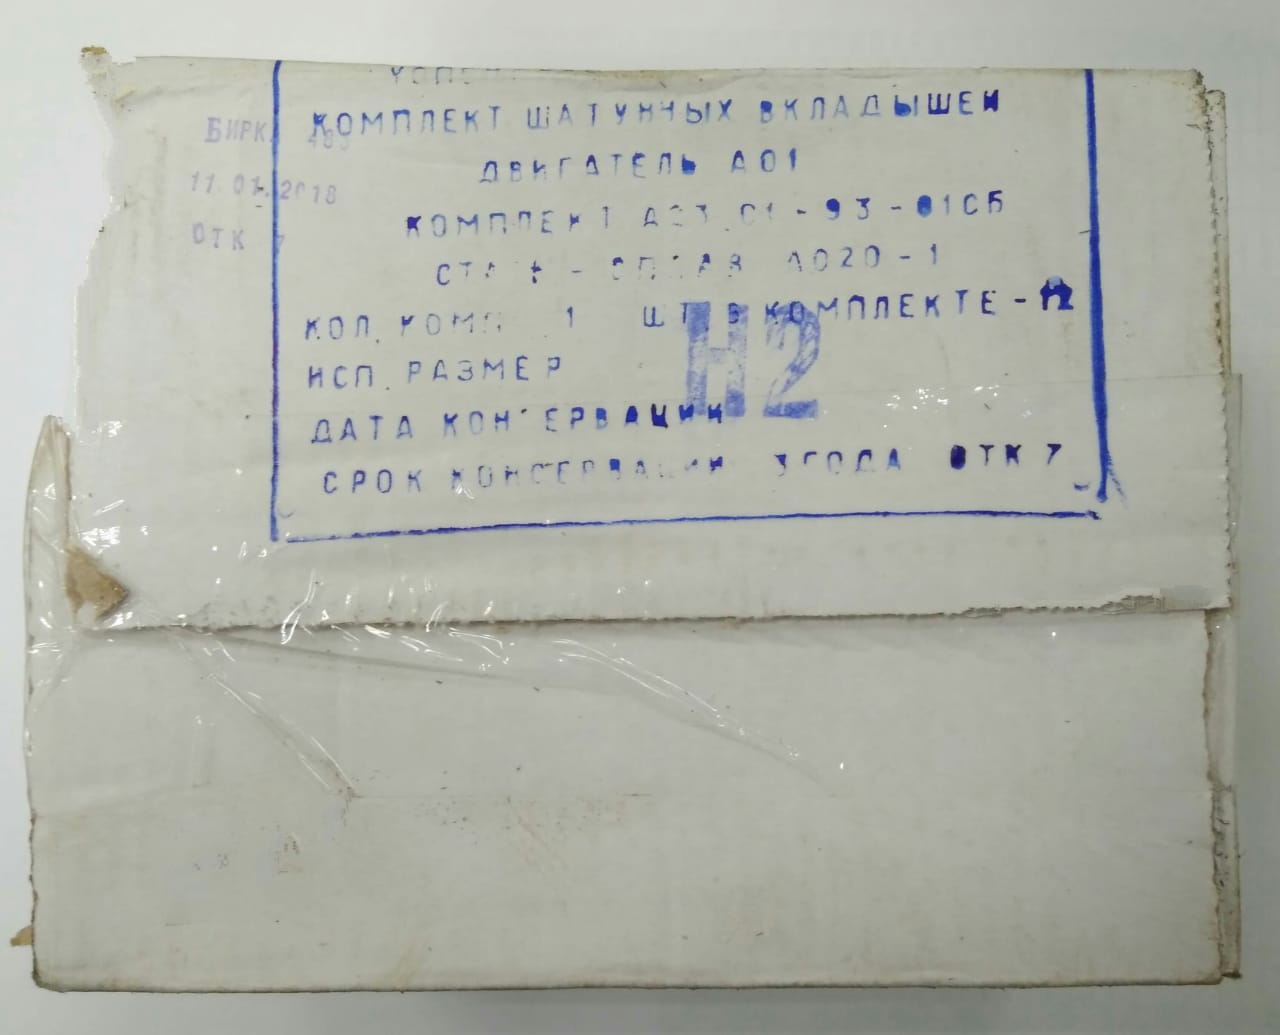 КОМПЛЕКТ ШАТУННЫХ ВКЛАДЫШЕЙ
БИРК 485
ДВИГАТЕЛЬ А01
11.01.2018
КОМПЛЕКТ А23.01-93-01СБ
ОТК 7
СПЛАВ АО20-1
КОЛ. КОМП 1 ШТ. В КОМПЛЕКТЕ-12
Н2
ИСП. РАЗМЕР
ДАТА КОНСЕРВАЦИИ
СРОК КОНСЕРВАЦИИ 3 ГОДА ОТК 7